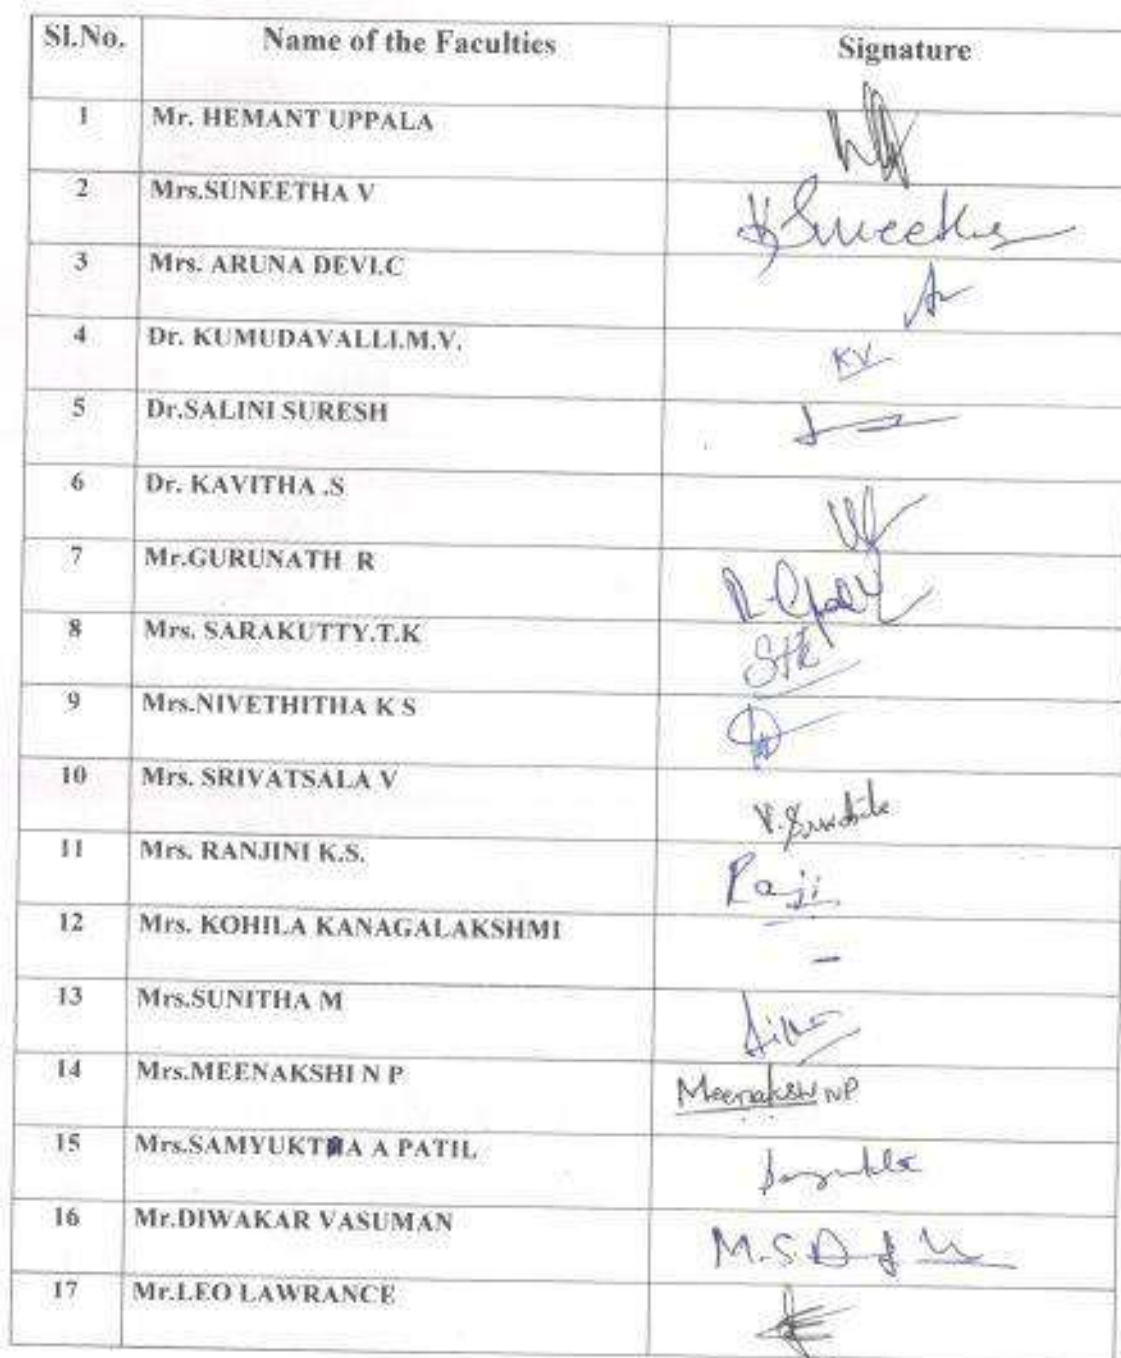 Sl.No. Name of the Faculties Signature
1 Mr. HEMANT UPPALA
2 Mrs.SUNEETHA V
3 Mrs. ARUNA DEVI.C
4 Dr. KUMUDAVALLI.M.V. KV
5 Dr.SALINI SURESH
6 Dr. KAVITHA .S
7 Mr.GURUNATH R
8 Mrs. SARAKUTTY.T.K Stk
9 Mrs.NIVETHITHA K S
10 Mrs. SRIVATSALA V
11 Mrs. RANJINI K.S. Raji
12 Mrs. KOHILA KANAGALAKSHMI –
13 Mrs.SUNITHA M
14 Mrs.MEENAKSHI N P Meenakshi NP
15 Mrs.SAMYUKTA A PATIL
16 Mr.DIWAKAR VASUMAN
17 Mr.LEO LAWRANCE